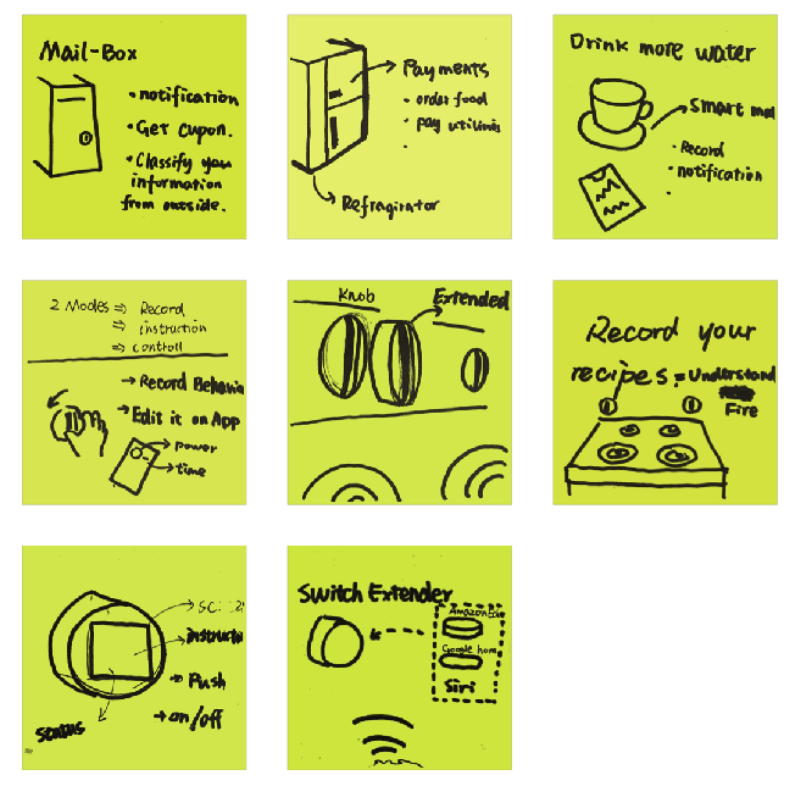 Mail-Box
• notification
• Get cupon.
• Classify you
information
from outside.
Payments
• order food
• pay utilities
•
Refragirator
Drink more water
Smart
• Record
• notification
•
2 Modes ⇒ Record
⇒ instruction
⇒ controll
→ Record Behavi
→ Edit it on App
→ power
→ time
Knob
Extended
Record your
recipes. = Understand
Fire
instructi
→ Push
→ on/off
status
Switch Extender
Google hom
Siri